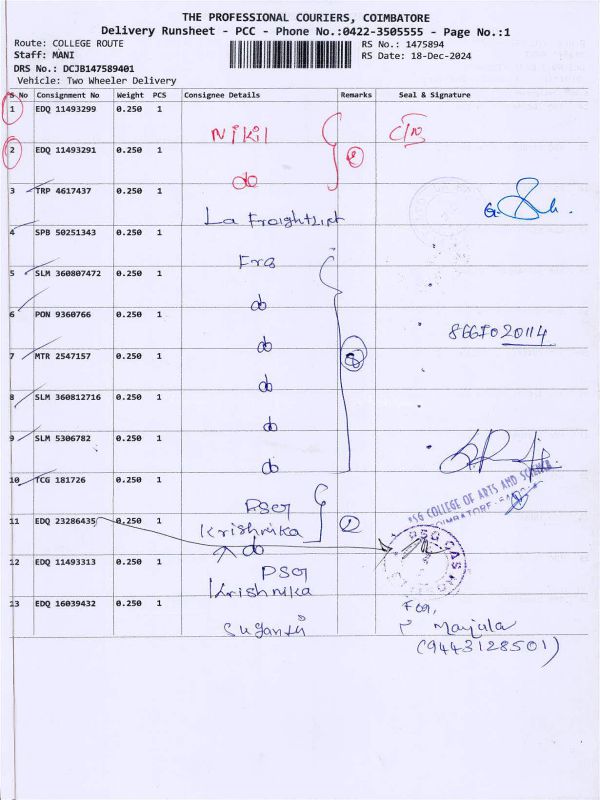 THE PROFESSIONAL COURIERS, COIMBATORE
Delivery Runsheet - PCC - Phone No.:0422-3505555 - Page No.:1
Route: COLLEGE ROUTE
RS No.: 1475894
Staff: MANI
RS Date: 18-Dec-2024
DRS No.: DCJB147589401
Vehicle: Two Wheeler Delivery
S No Consignment No Weight PCS Consignee Details Remarks Seal & Signature
1 EDQ 11493299 0.250 1
Nikil
2 EDQ 11493291 0.250 1
do
3 TRP 4617437 0.250 1
La Freightlift
4 SPB 50251343 0.250 1
5 SLM 360807472 0.250 1
do
6 PON 9360766 0.250 1
do
7 MTR 2547157 0.250 1
do
8 SLM 360812716 0.250 1
do
9 SLM 5306782 0.250 1
do
10 TCG 181726 0.250 1
PSG COLLEGE OF ARTS AND SCIENCE
COIMBATORE
11 EDQ 23286435 0.250 1
Krishnika
do
PSG CAS
12 EDQ 11493313 0.250 1
Krishnika
13 EDQ 16039432 0.250 1
For,
Suganthi
(9443128501)